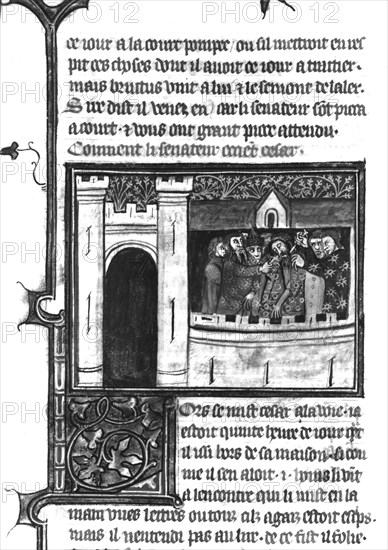 ce iour a la court pompee / ou sil mettoit en res
pit ces choses dont il auoit ce iour a traitier ·
mais brutus vint a lui & le semont de laler ·
Sire dist il venez en / car li senateur sont pieca
a court · & vous ont grant piece attendu ·
Coment li senateur cesar ·
Ors se mist cesar a la voie · ia
estoit quinte heure de iour qut
il issi hors de sa maison · si com
me il sen aloit · i · homs li vit
a lencontre qui li mist en la
main vnes lettres ou tout
mais il nentendi pas au lire · de ce fist il folie ·